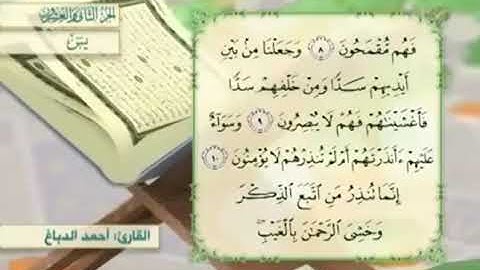 الجزء الثاني والعشرون
يسٓ
فَهُم مُّقْمَحُونَ ٨ وَجَعَلْنَا مِنۢ بَيْنِ
أَيْدِيهِمْ سَدًّا وَمِنْ خَلْفِهِمْ سَدًّا
فَأَغْشَيْنَٰهُمْ فَهُمْ لَا يُبْصِرُونَ ٩ وَسَوَآءٌ
عَلَيْهِمْ ءَأَنذَرْتَهُمْ أَمْ لَمْ تُنذِرْهُمْ لَا يُؤْمِنُونَ ١٠
إِنَّمَا تُنذِرُ مَنِ ٱتَّبَعَ ٱلذِّكْرَ
وَخَشِىَ ٱلرَّحْمَٰنَ بِٱلْغَيْبِ ۖ
القارئ: أحمد الدباغ